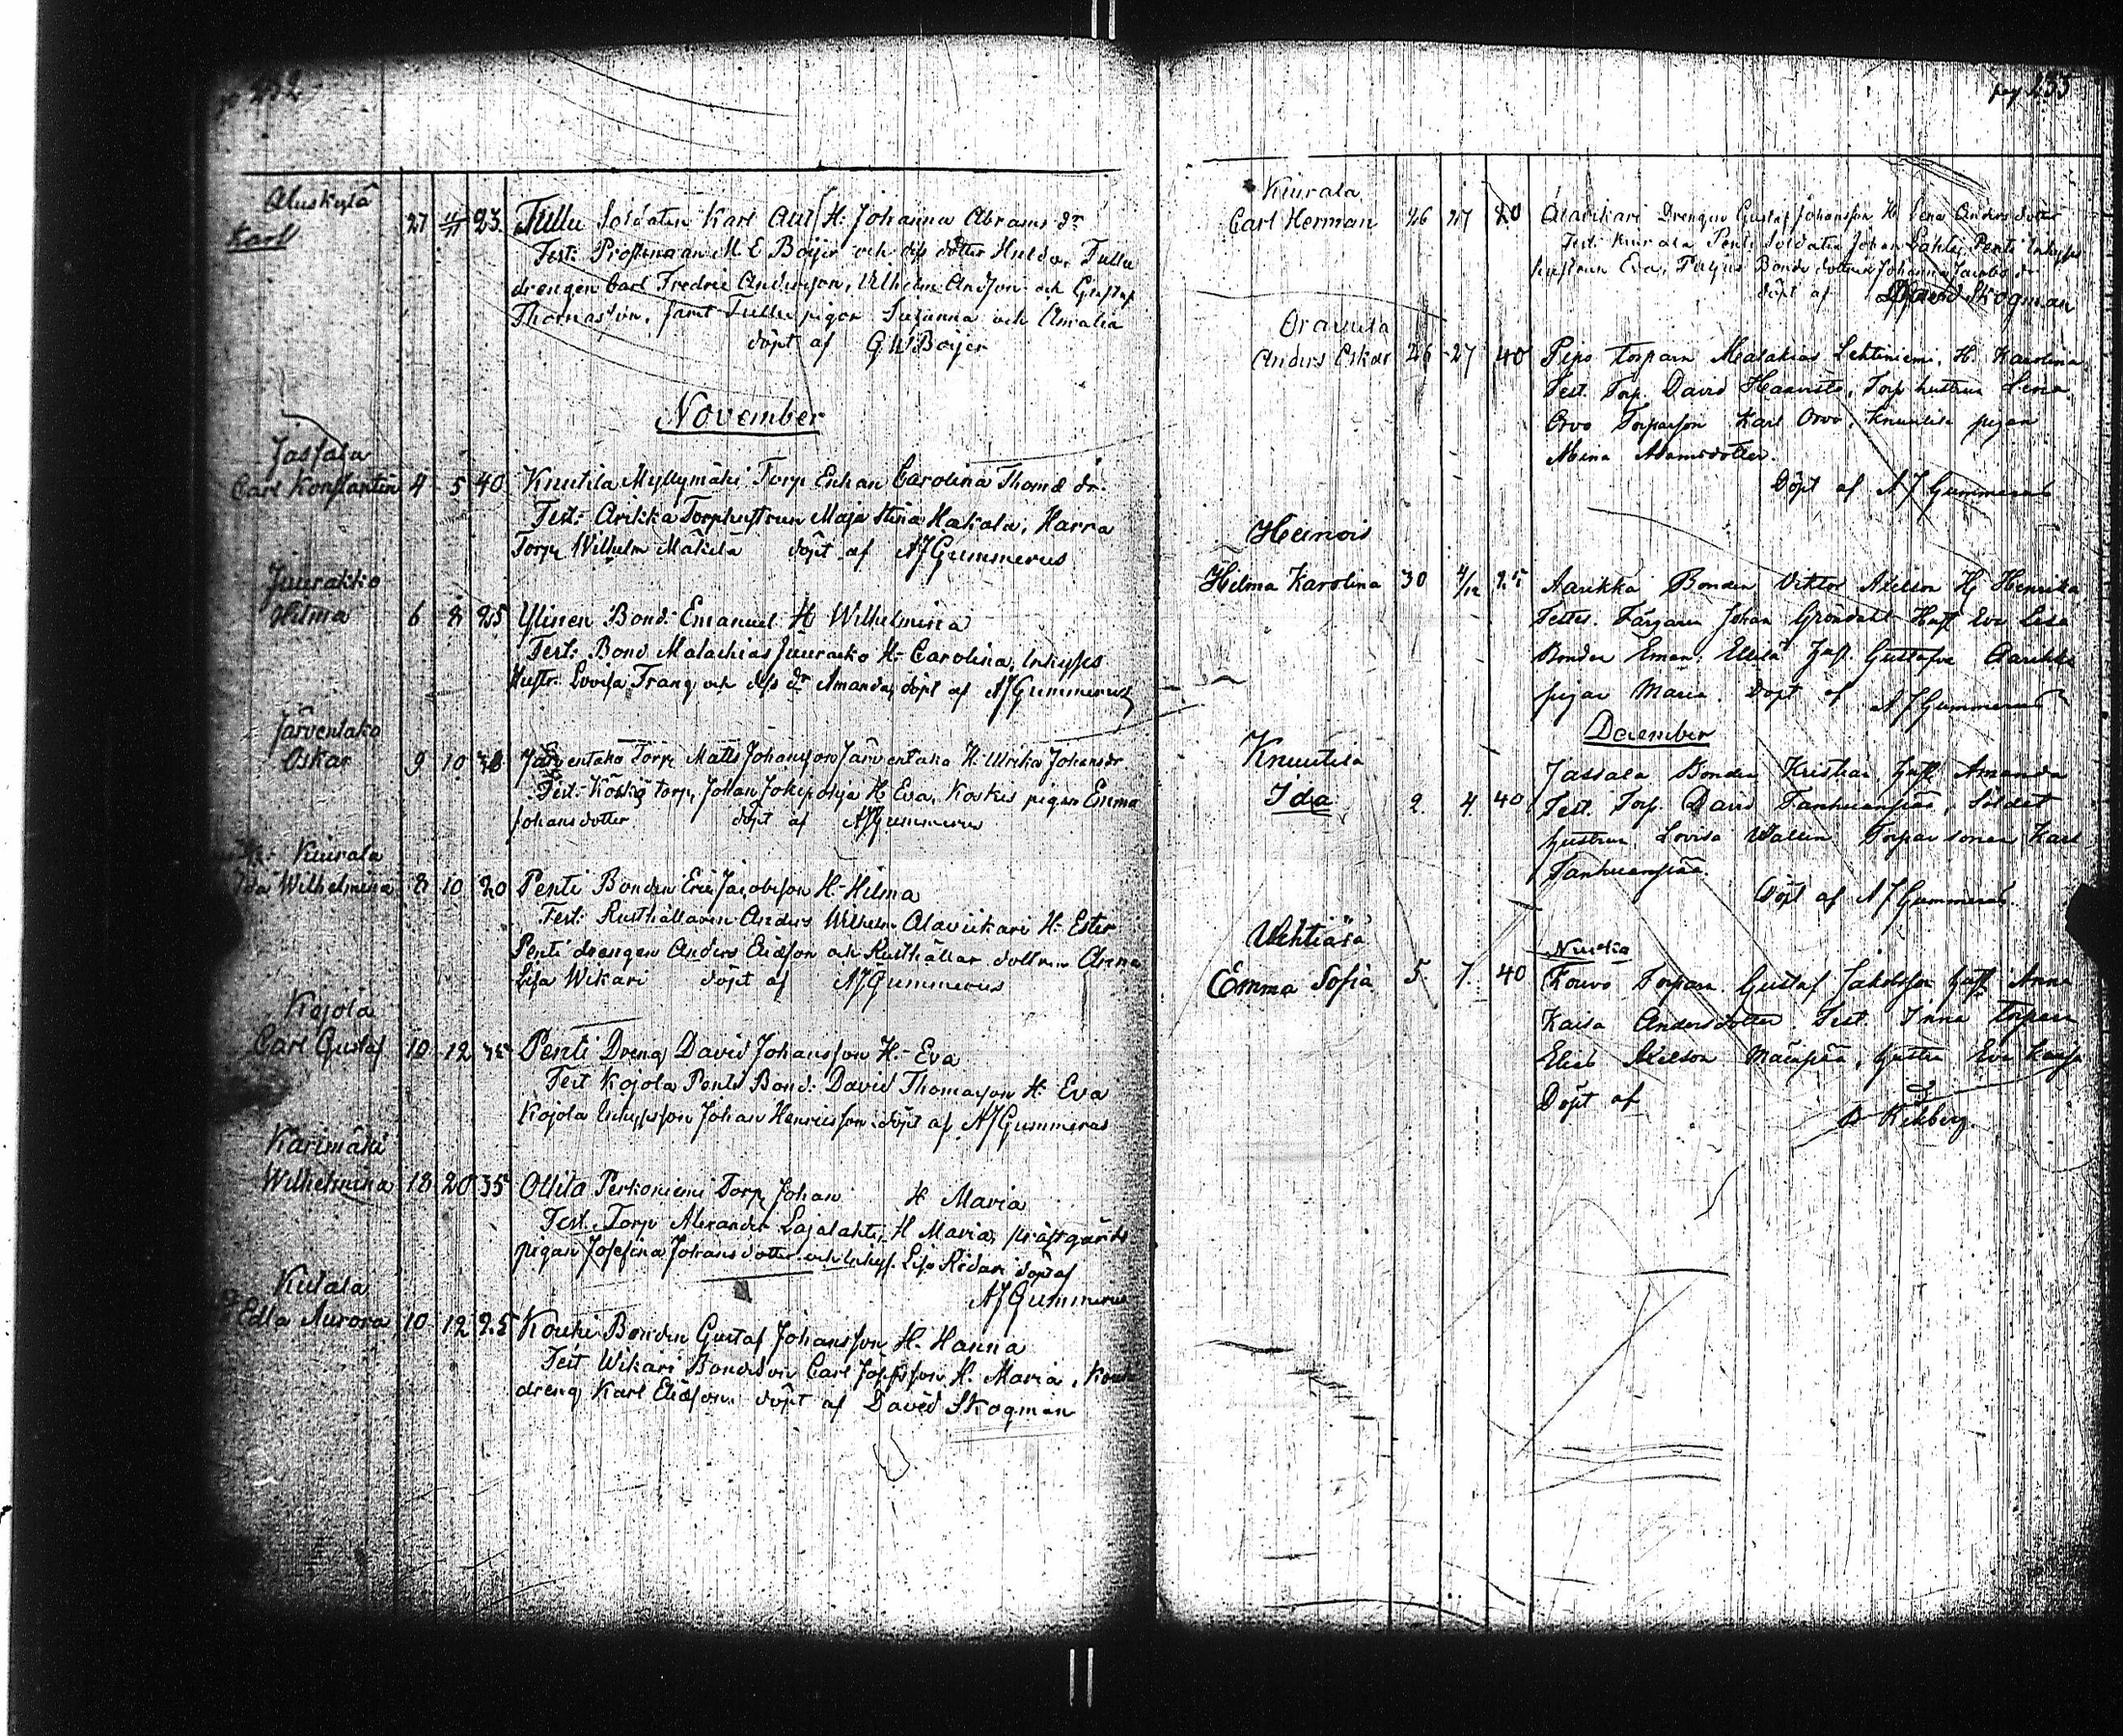 232
Aluskylä
Karl 27 11/11 23 Tullu Soldaten Karl Ault H: Johanna Abrams dr
Test: Prostennan M E Boijer och dess dotter Hulda, Tullu
drengen Carl Fredric Andersson, Wilhelm Andsson och Gustaf
Thomasson, samt Tullu pigor Susanna och Amalia
döpt af G W Boijer
November
Jassala
Carl Konstantin 4 5 40 Knutila Myllymäki Torp Enkan Carolina Thomæ dr.
Test: Arikka Torphustrun Maja Stina Hakala, Harra
Torp. Wilhelm Mäkelä döpt af A J Gummerus
Juurakko
Hilma 6 8 25 Ylinen Bond: Emanuel H Wilhelmina
Test: Bond Malachias Juurakko H: Carolina, Inhyses
Hustr. Lovisa Frang och dess dr Amanda, döpt af A J Gummerus
Järventako
Oskar 9 10 Järventako Torp: Matts Johansson Järventaka H: Ulrika Johansdr
Test: Koskis torp, Johan Jokipohja H Eva, Koskis pigan Emma
Johansdotter döpt af A J Gummerus
Kiurala
Ida Wilhelmina 8 10 20 Penti Bonden Eric Jacobsson H: Hilma
Test: Rusthållaren Anders Wilhelm Alaviikari H: Ester
Penti drengen Anders Ericsson och Rusthållar dottren Anna
Lisa Wikari döpt af A J Gummerus
Kojola
Carl Gustaf 10 12 35 Penti Dreng David Johansson H: Eva
Test Kojola Penti Bond: David Thomasson H: Eva
Kojola Inhysesson Johan Henricsson. döpt af A J Gummerus
Karimäki
Wilhelmina 18 20 35 Ollila Perkoniemi Torp. Johan H Maria
Test. Torp: Alexander Lajalahti, H Maria, prästgårds
pigan Josefina Johansdotter och Inhys. Lisa Ridari döpt af
A J Gummerus
Kutala
Edla Aurora 10 12 25 Kouhi Bonden Gustaf Johansson, H. Hanna
Test Wikari Bondeson Carl Josefsson, H. Maria, Kouhi
dreng Karl Elidsson. döpt af David Skogman
pag 233
Kiurala
Carl Herman 26 27 20 Alaviikari Drengen Gustaf Johansson H Lena Andersdotter
Test: Kiurala Penti Soldaten Johan Dahl, Penti Inhyses
hustrun Eva, Bonde dottren Johanna Jacobs dr
döpt af David Skogman
Oravula
Anders Oskar 26 27 40 Pepo torparn Malakias Lehtiniemi, H. Karolina
Test. Torp. David Haavisto, Torp hustrun Lena
Orvo Torparson Karl Orvo, Knuutila pigan
Mina Adamsdotter.
Döpt af A J Gummerus
Heinois
Helma Karolina 30 4/12 25 Aarikka Bonden Viktor Axelson H Henrika
Testes. Färgaren Johan Gröndahl Hust Eva Lisa
Bonden Eman: Ellilä Hust. Gustafva Aarikka
pigan Maria. Döpt af A J Gummerus
December
Knuutila
Ida 2. 4. 40 Jassala Bonden Kristian Hust Amanda
Test. Torp. David Tanhuanpää, Soldat
hustrun Lovisa Wallin Torparsonen Karl
Tanhuanpää.
Döpt af A J Gummerus.
Vehtiärä
Emma Sofia 5. 7. 40 Kouvo Torparn Gustaf Jakobsson hust Anna
Kaisa Andersdotter. Test. Inna Torparn
Elias Axelson Mäenpää, hustru Eva Kaisa
Döpt af